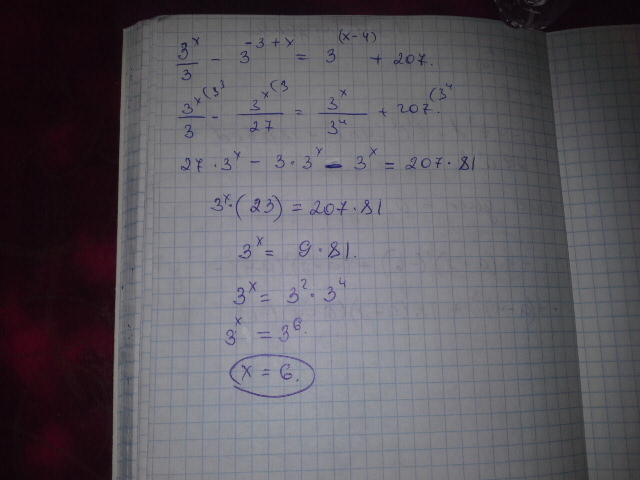 3^x/3 - 3^(-3+x) = 3^(x-4) + 207.
3^x(3^3/3 - 3^x(3/27 = 3^x/3^4 + 207.(3^4
27·3^x - 3·3^x - 3^x = 207·81
3^x·(23) = 207·81
3^x = 9·81.
3^x = 3^2·3^4
3^x = 3^6.
x = 6.